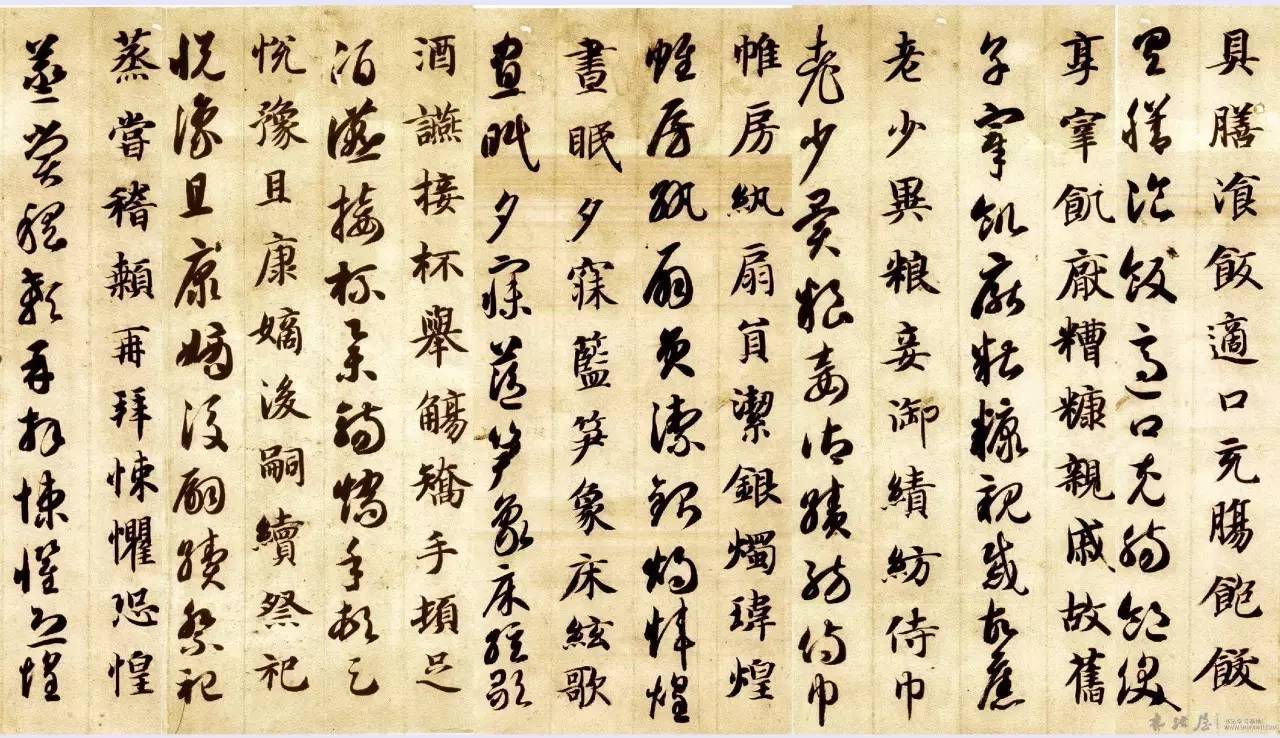 具膳湌飯適口充腸飽飫
具膳湌飯適口充腸飽飫
享宰飢厭糟糠親戚故舊
享宰飢厭糟糠親戚故舊
老少異粮妾御績紡侍巾
老少異粮妾御績紡侍巾
帷房紈扇員潔銀燭瑋煌
帷房紈扇員潔銀燭煒煌
晝眠夕寐籃笋象床絃歌
晝眠夕寐藍笋象床絃歌
酒讌接杯舉觴矯手頓足
酒讌接杯舉觴矯手頓足
悅豫且康嫡後嗣續祭祀
悅豫且康嫡後嗣續祭祀
蒸嘗稽顙再拜悚懼恐惶
蒸嘗稽顙再拜悚懼恐惶